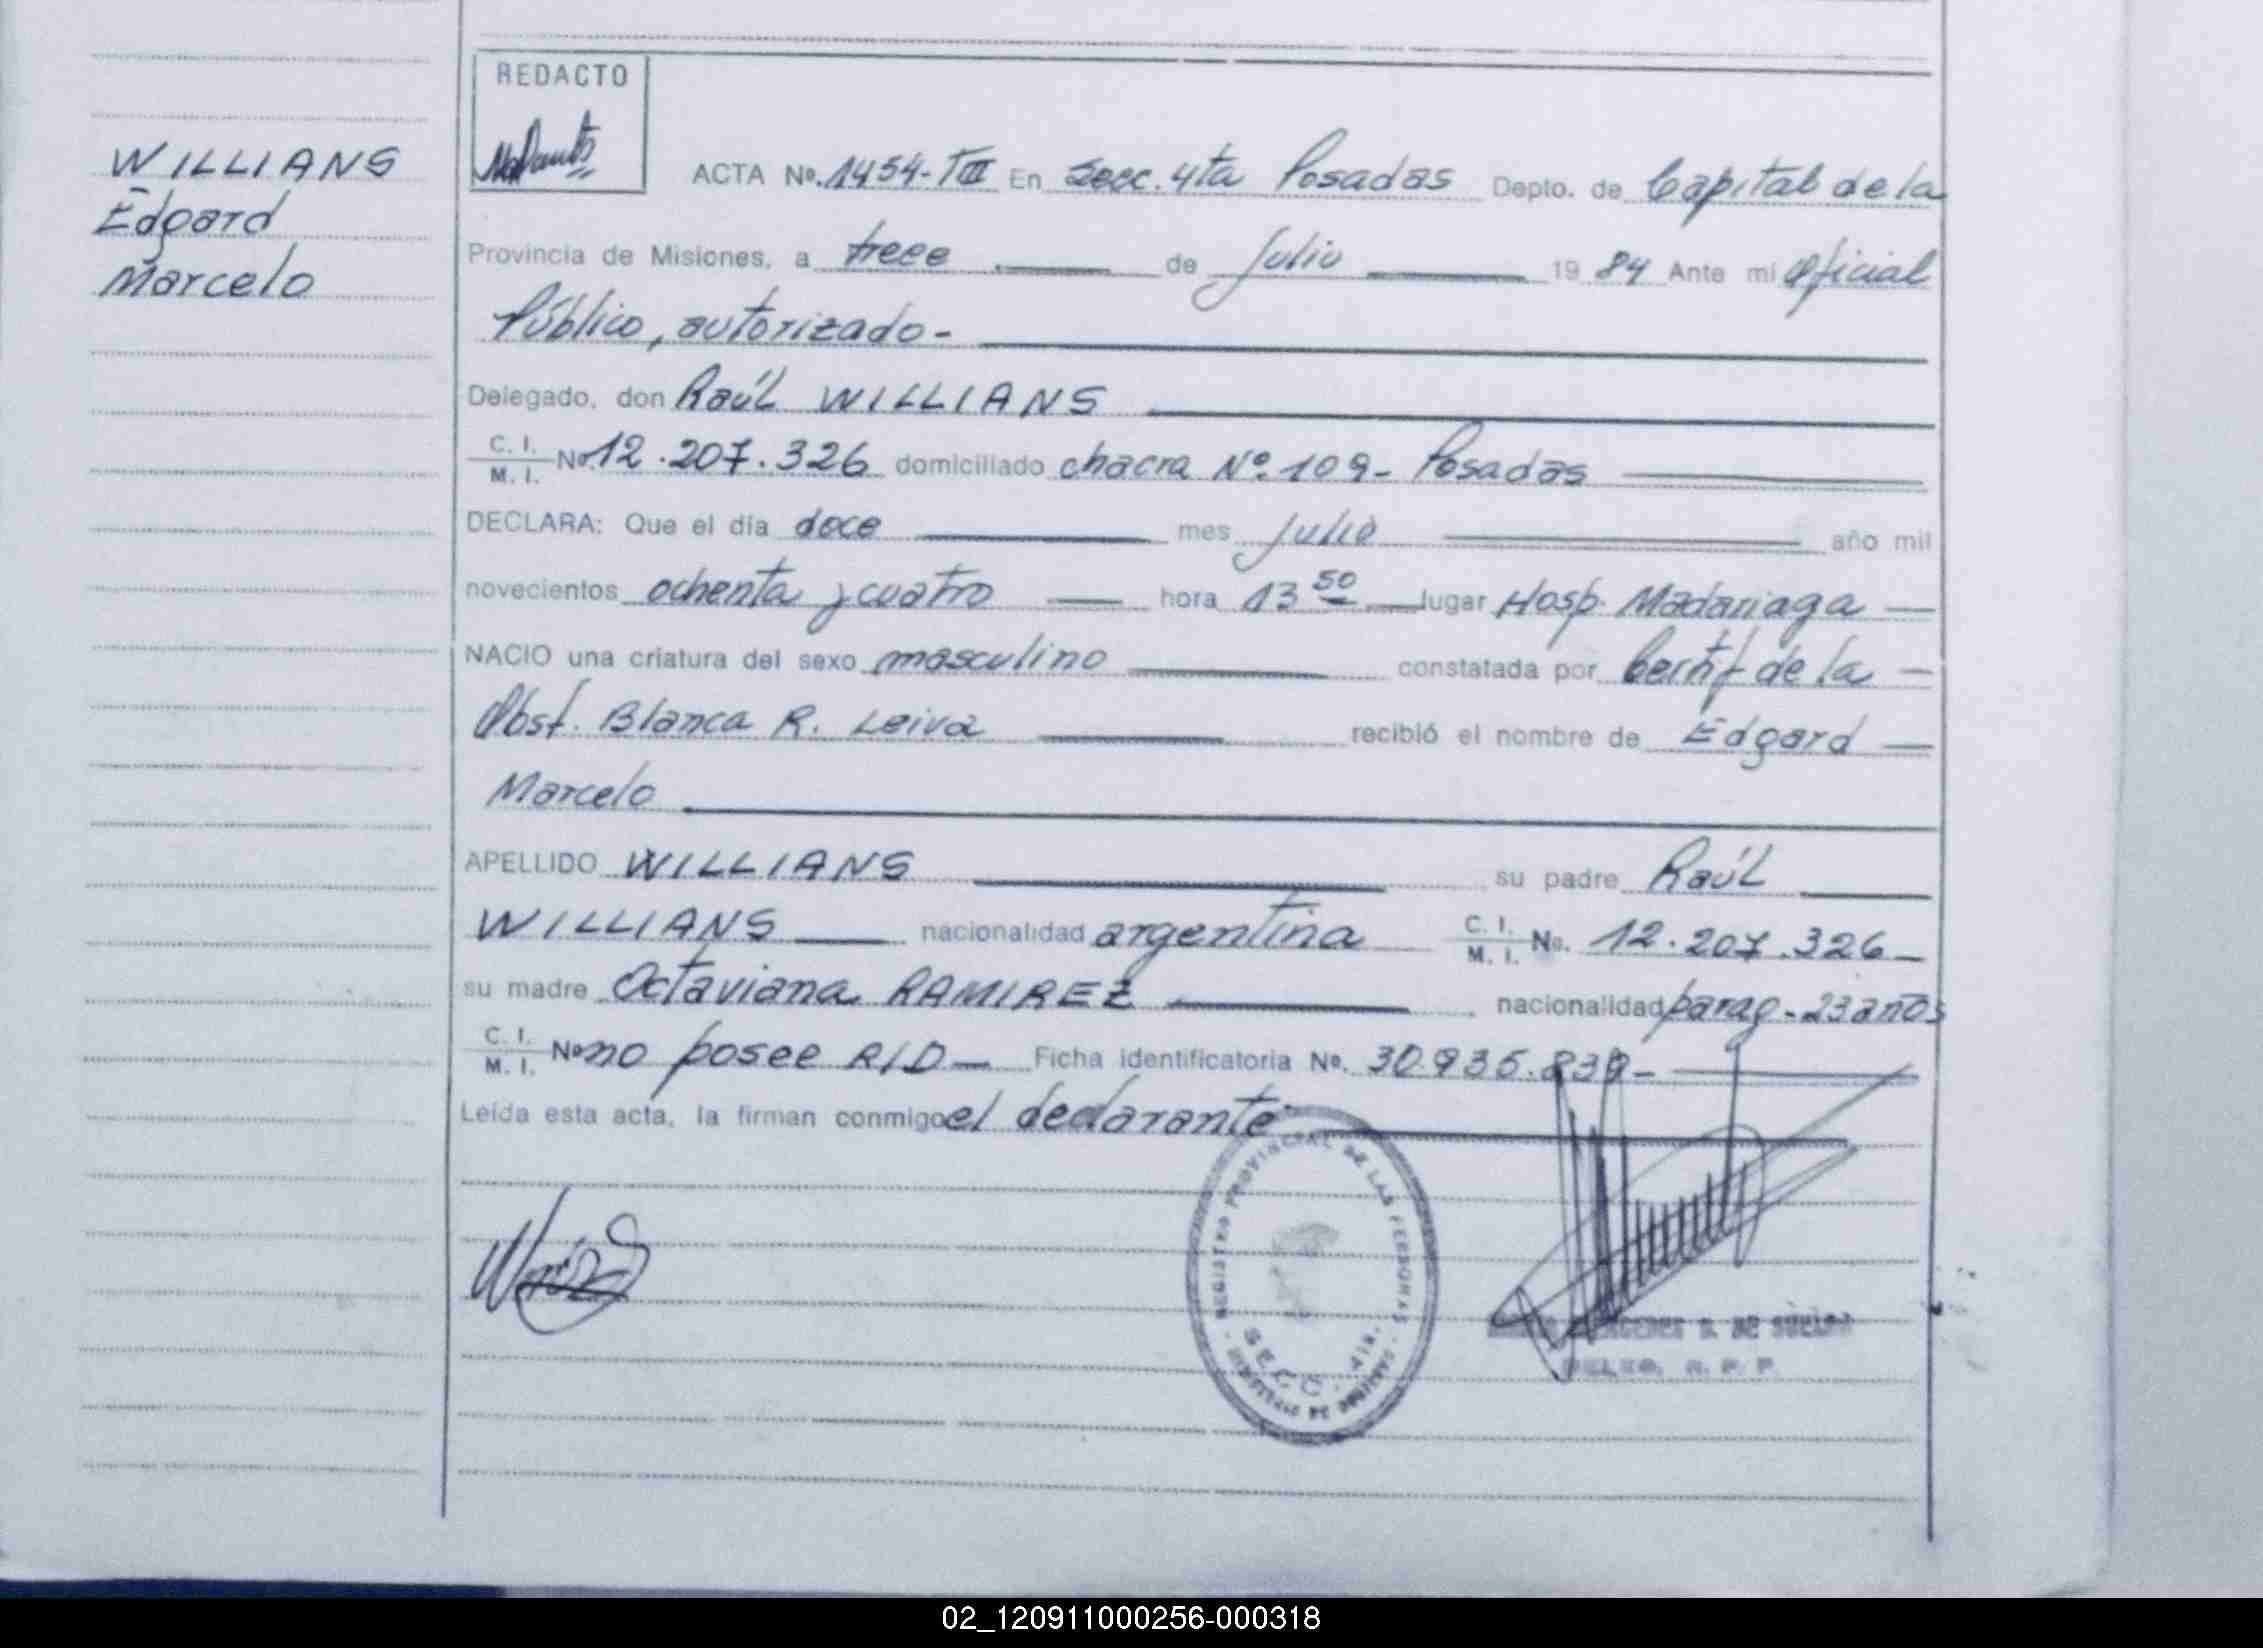 WILLIANS
Edgard
Marcelo
REDACTO
ACTA No. 1454-TIII En Secc. 4ta Posadas Depto. de Capital de la
Provincia de Misiones, a trece de Julio 19 84 Ante mi Oficial
Público, autorizado-
Delegado, don Raúl WILLIANS
C. I.
M. I. No 12.207.326 domiciliado chacra Nº 109- Posadas
DECLARA: Que el día doce mes Julio año mil
novecientos ochenta y cuatro hora 13 50 lugar Hosp. Madariaga
NACIO una criatura del sexo masculino constatada por Certif de la
Obst. Blanca R. Leiva recibió el nombre de Edgard
Marcelo
APELLIDO WILLIANS su padre Raúl
WILLIANS nacionalidad argentina C. I. M. I. No. 12.207.326
su madre Octaviana RAMIREZ nacionalidad parag-23 años
C. I.
M. I. No no posee R/D Ficha identificatoria No. 30.935.839-
Leída esta acta, la firman conmigo el declarante
REGISTRO PROVINCIAL DE LAS PERSONAS
DE SUELDO
DELEG. R. P. P.
02_120911000256-000318